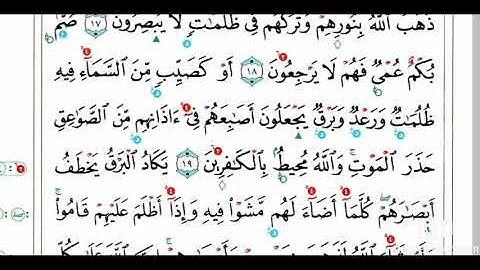 ذَهَبَ ٱللَّهُ بِنُورِهِمْ وَتَرَكَهُمْ فِى ظُلُمَٰتٍ لَّا يُبْصِرُونَ ١٧ صُمٌّۢ
بُكْمٌ عُمْىٌ فَهُمْ لَا يَرْجِعُونَ ١٨ أَوْ كَصَيِّبٍ مِّنَ ٱلسَّمَآءِ فِيهِ
ظُلُمَٰتٌ وَرَعْدٌ وَبَرْقٌ يَجْعَلُونَ أَصَٰبِعَهُمْ فِىٓ ءَاذَانِهِم مِّنَ ٱلصَّوَٰعِقِ
حَذَرَ ٱلْمَوْتِ وَٱللَّهُ مُحِيطٌۢ بِٱلْكَٰفِرِينَ ١٩ يَكَادُ ٱلْبَرْقُ يَخْطَفُ
أَبْصَٰرَهُمْ كُلَّمَآ أَضَآءَ لَهُم مَّشَوْا۟ فِيهِ وَإِذَآ أَظْلَمَ عَلَيْهِمْ قَامُوا۟